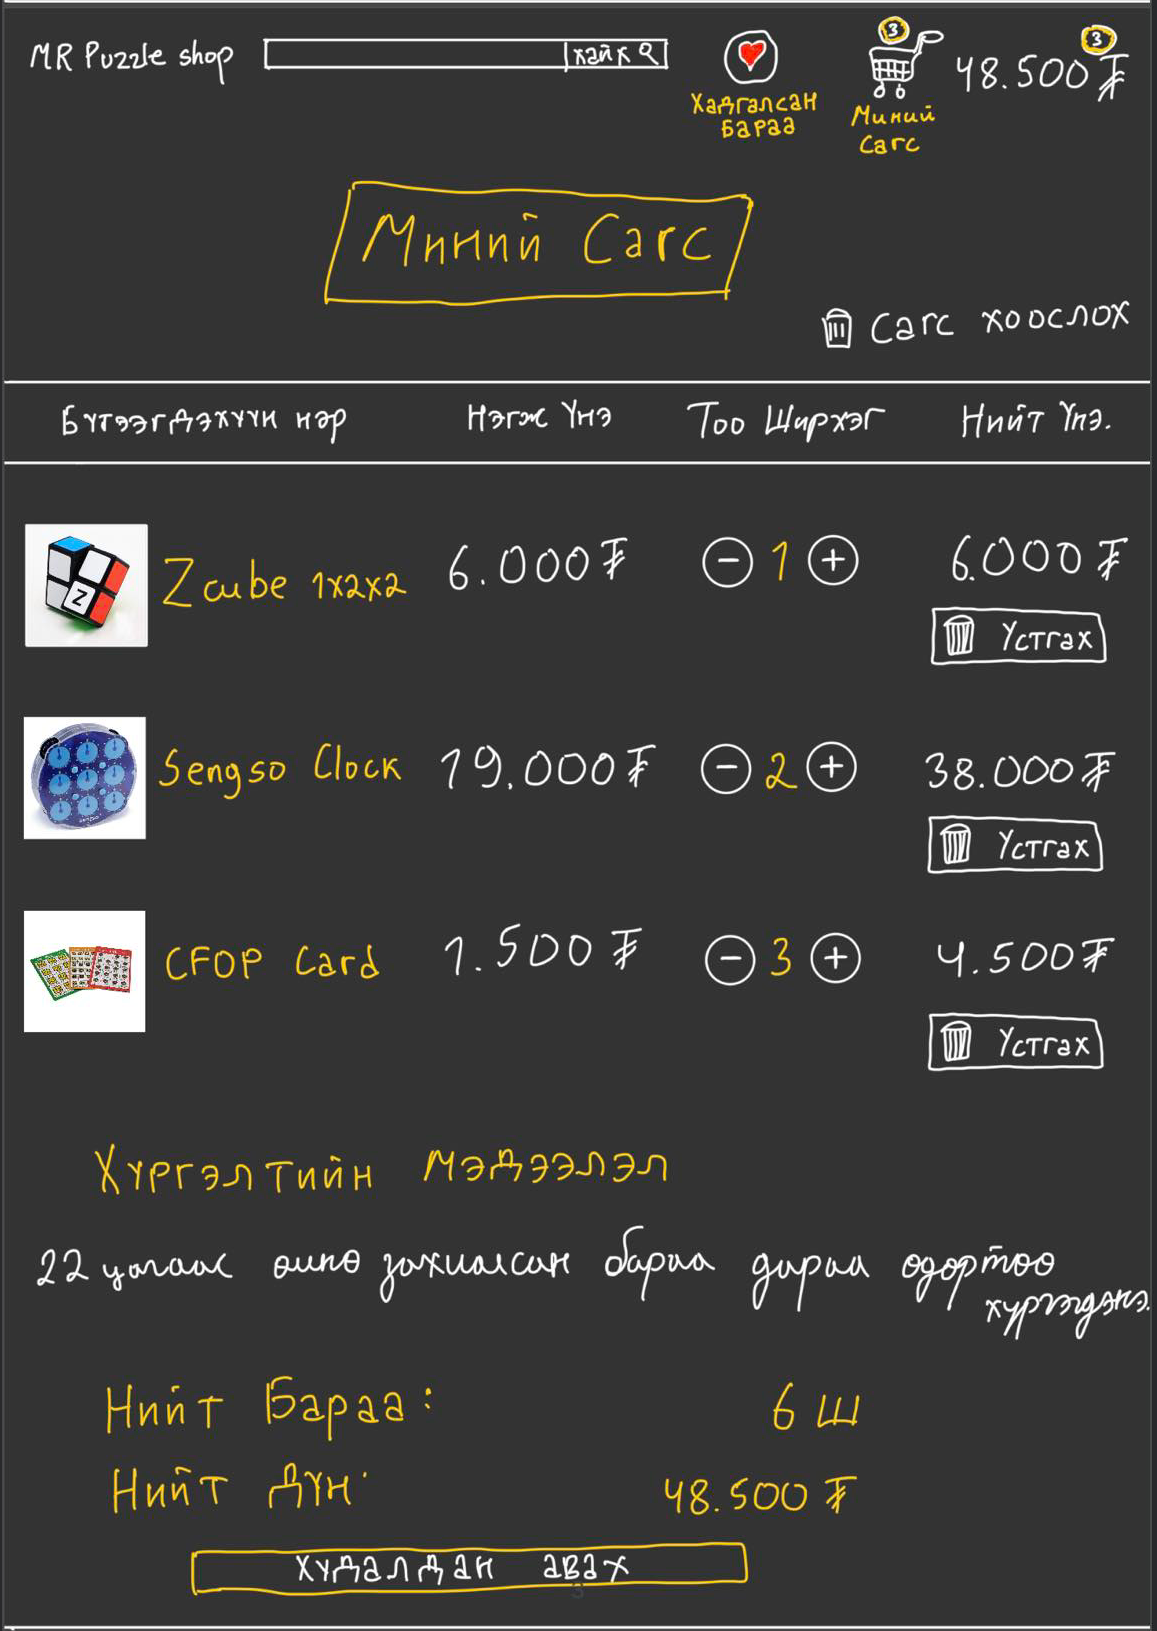 MR Puzzle shop
хайх
3
3
48.500₮
Хадгалсан
Бараа
Миний
Сагс
Миний Сагс
Сагс хоослох
Бүтээгдэхүүн нэр Нэгж Үнэ Тоо Ширхэг Нийт Үнэ.
Z
Zcube 1x2x2 6.000₮ − 1 + 6.000₮
Устгах
Sengso Clock 19.000₮ − 2 + 38.000₮
Устгах
CFOP Card 1.500₮ − 3 + 4.500₮
Устгах
Хүргэлтийн мэдээлэл
22 цагаас өмнө захиалсан бараа дараа өдөртөө
хүргэгдэнэ.
Нийт Бараа: 6 ш
Нийт дүн: 48.500₮
Худалдан авах
3